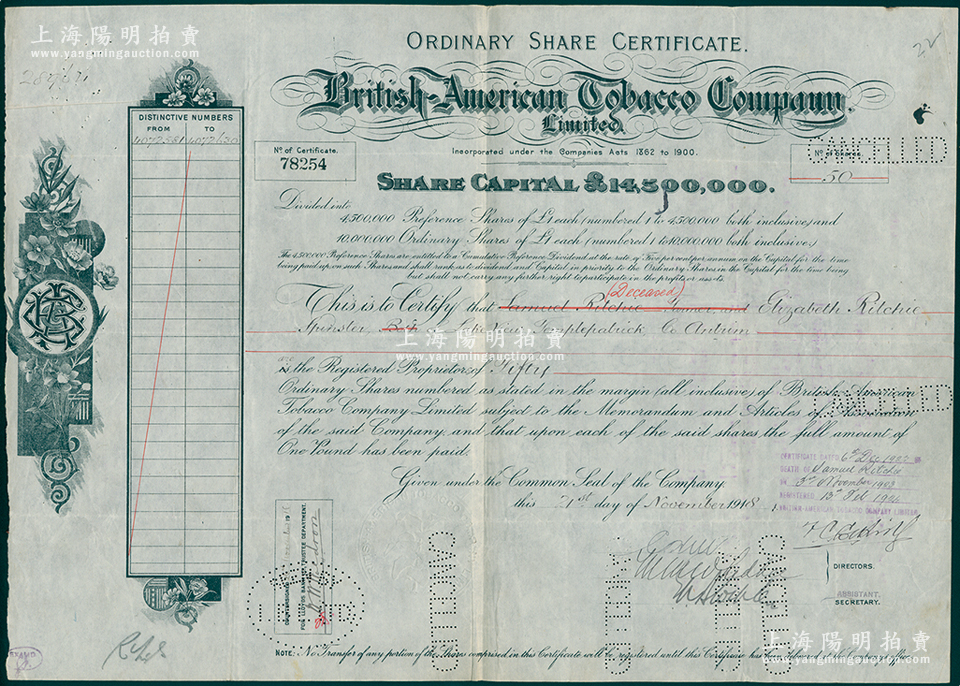 上海陽明拍賣
www.yangmingauction.com
ORDINARY SHARE CERTIFICATE.
22
British-American Tobacco Company.
Limited.
DISTINCTIVE NUMBERS
FROM TO
4072581 4072630
Nº of Certificate.
78254
Incorporated under the Companies Acts 1862 to 1900.
CANCELLED
50
SHARE CAPITAL £14,500,000.
Divided into
4,500,000 Preference Shares of £1 each (numbered 1 to 4,500,000 both inclusive) and
10,000,000 Ordinary Shares of £1 each (numbered 1 to 10,000,000 both inclusive)
The 4,500,000 Preference Shares are entitled to a Cumulative Preference Dividend at the rate of Five per cent per annum on the Capital for the time
being paid up on such Shares and shall rank as to dividend and Capital in priority to the Ordinary Shares in the Capital for the time being
but shall not carry any further right to participate in the profits or assets.
(Deceased)
This is to Certify that Samuel Ritchie Farmer, and Elizabeth Ritchie
Spinster Templepatrick Co Antrim
are
is the Registered Proprietor of Fifty
Ordinary Shares numbered as stated in the margin (all inclusive) of British-American
Tobacco Company Limited subject to the Memorandum and Articles of Association
CANCELLED
of the said Company, and that upon each of the said shares the full amount of
One Pound has been paid.
CERTIFICATE DATED 6th Dec
DEATH OF Samuel Ritchie
ON 3rd November
REGISTERED 13th Feb
BRITISH-AMERICAN TOBACCO COMPANY LIMITED
Given under the Common Seal of the Company.
this 21st day of November 1918
COUNTERSIGNED
FOR LLOYDS BANK LTD. TRUSTEE DEPARTMENT.
CANCELLED
DIRECTORS.
ASSISTANT
SECRETARY.
EXAMD
上海陽明拍賣
www.yangmingauction.com
NOTE:- No Transfer of any portion of the Shares comprised in this Certificate will be registered until this Certificate has been delivered at the Company's Office.